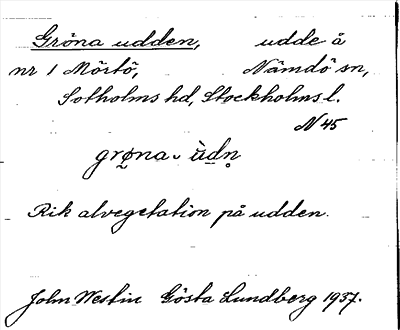 Gröna udden, udde å
nr 1 Mörtö, Nämdö sn,
Sotholms hd, Stockholms l.
N 45
grø̀na- ùdn̥
Rik alvegetation på udden.
John Westin Gösta Lundberg 1937.